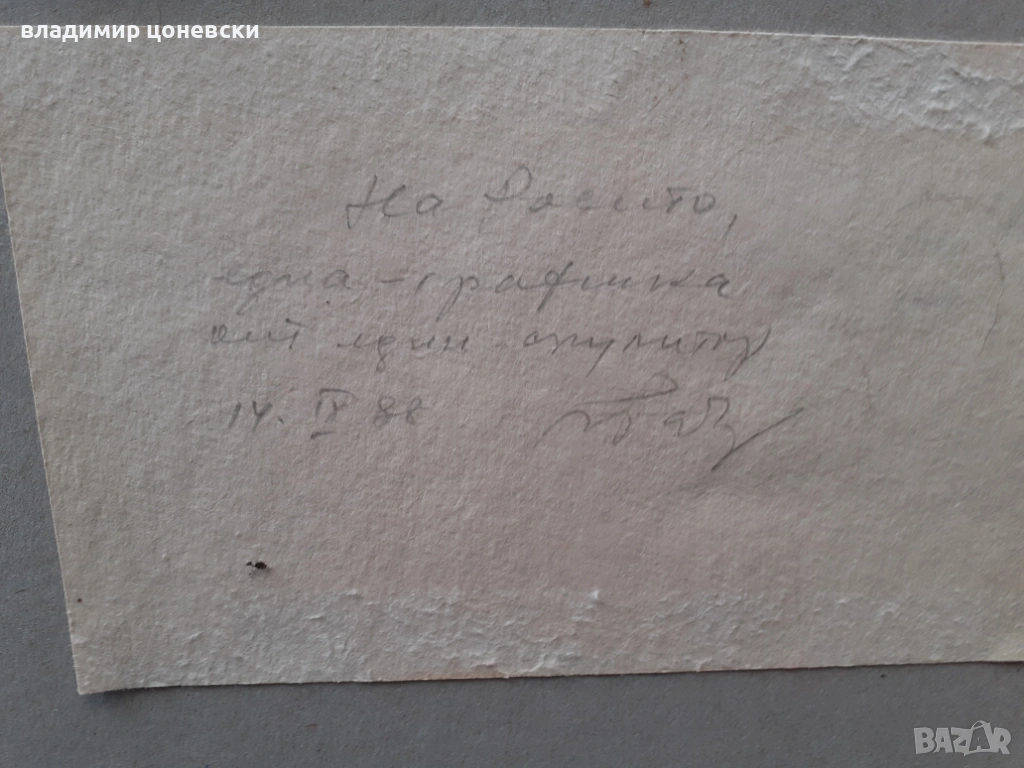 владимир цоневски
На Росито,
една графика
от един скулптор
14. IX 88
BAZAR